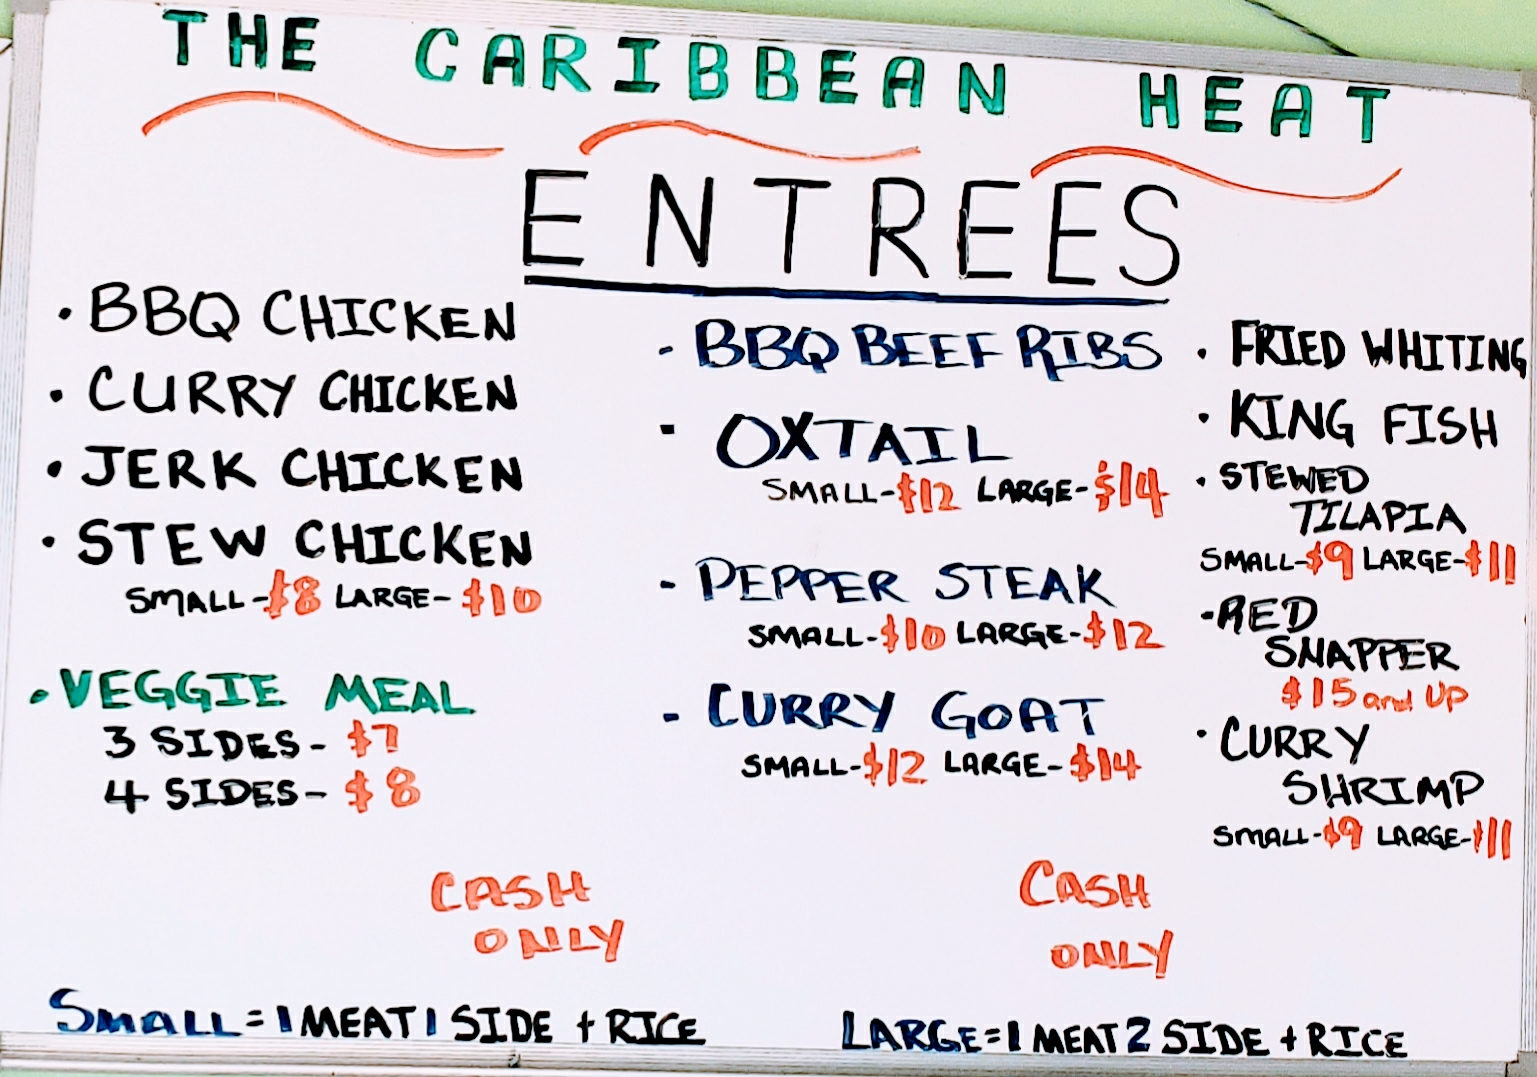 THE CARIBBEAN HEAT
ENTREES
· BBQ CHICKEN
· CURRY CHICKEN
· JERK CHICKEN
· STEW CHICKEN
SMALL-$8 LARGE-$10
· VEGGIE MEAL
3 SIDES-$7
4 SIDES-$8
- BBQ BEEF RIBS
- OXTAIL
SMALL-$12 LARGE-$14
- PEPPER STEAK
SMALL-$10 LARGE-$12
- CURRY GOAT
SMALL-$12 LARGE-$14
· FRIED WHITING
· KING FISH
· STEWED
TILAPIA
SMALL-$9 LARGE-$11
· RED
SNAPPER
$15 and UP
· CURRY
SHRIMP
SMALL-$9 LARGE-$11
CASH
ONLY
CASH
ONLY
SMALL=1 MEAT 1 SIDE + RICE
LARGE=1 MEAT 2 SIDE + RICE